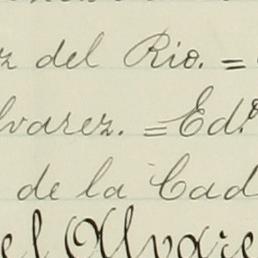 z del Rio. =
lvarez. = Ed.º
de la Cad
el Alvare